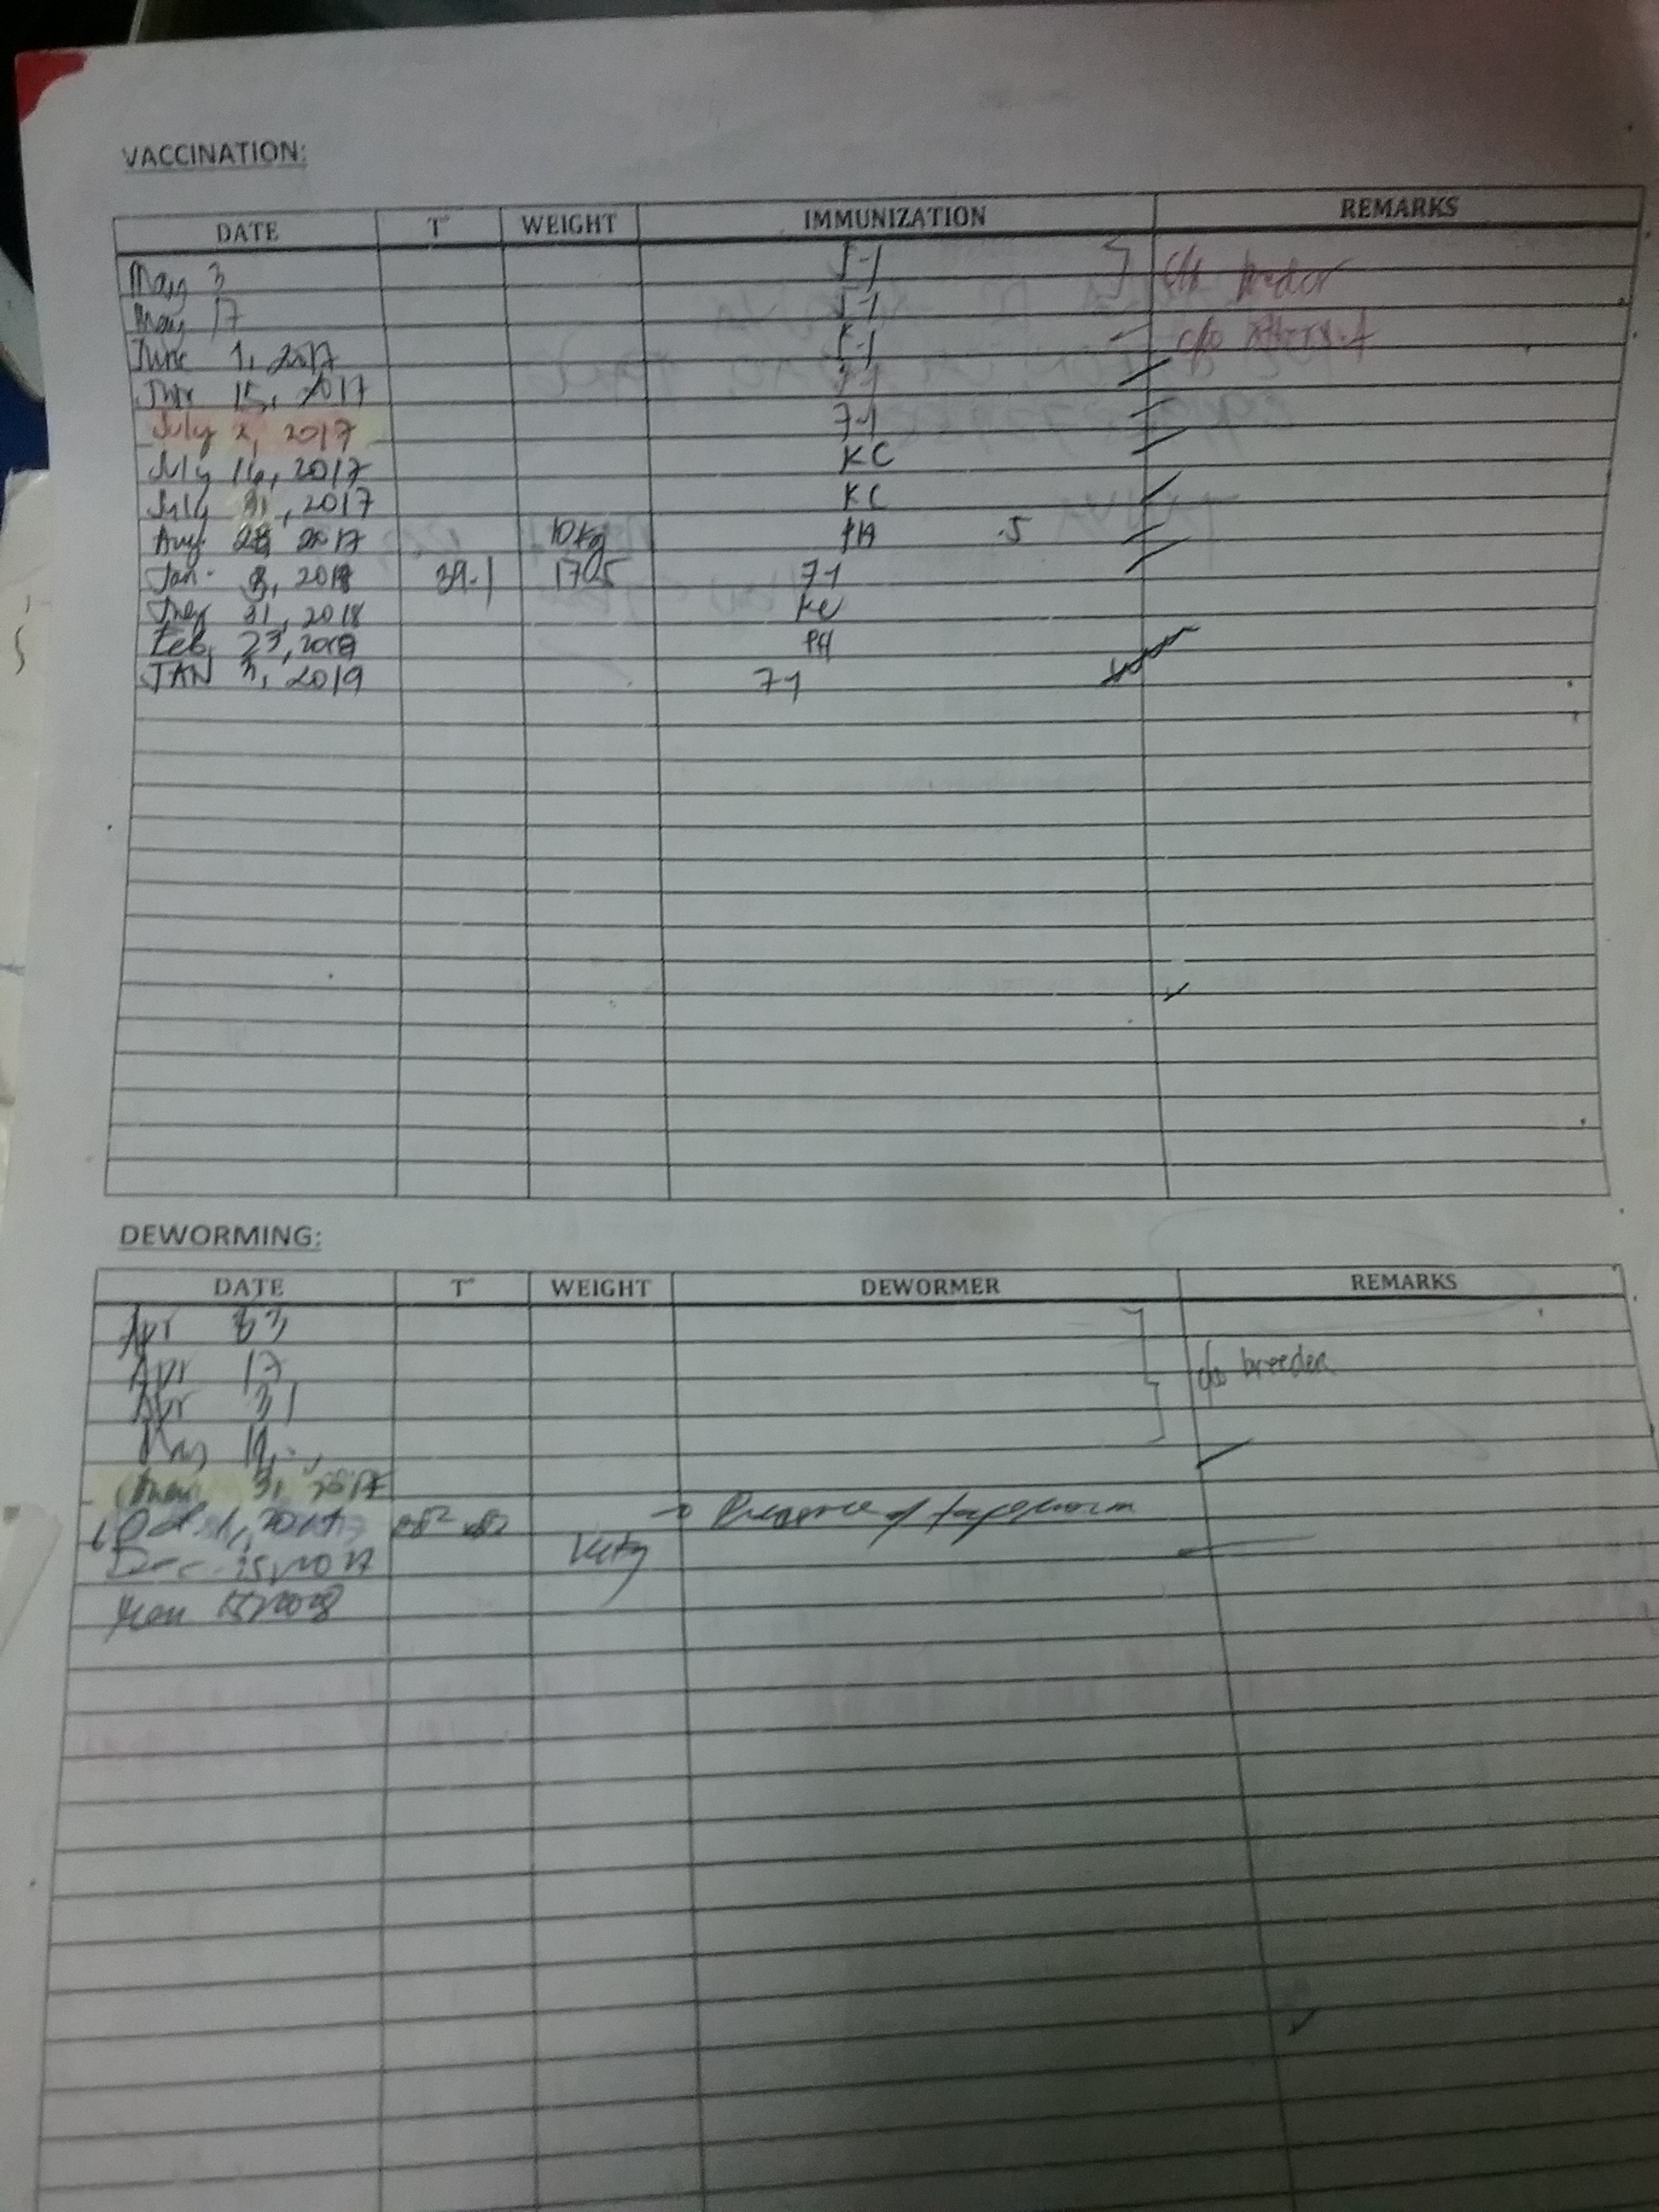 VACCINATION:
DATE T° WEIGHT IMMUNIZATION REMARKS
May 3 5-1 c/o
May 17 5-1
June 1, 2017 5-1 c/o
15, 2017
July 2, 2017 7-1
July 16, 2017 KC
July 31, 2017 KC
Aug. 28 2017 10kg .5
Jan. 8, 2018 39.1 17.5 7-1
31, 2018 KC
Feb. 23, 2018
JAN 3, 2019 7-1
DEWORMING:
DATE T° WEIGHT DEWORMER REMARKS
Apr 3
Apr 17 c/o breeder
Apr 31
May
31, 2017
Oct. 1, 2017 Presence of tapeworm
Dec. 15, 2017
2018